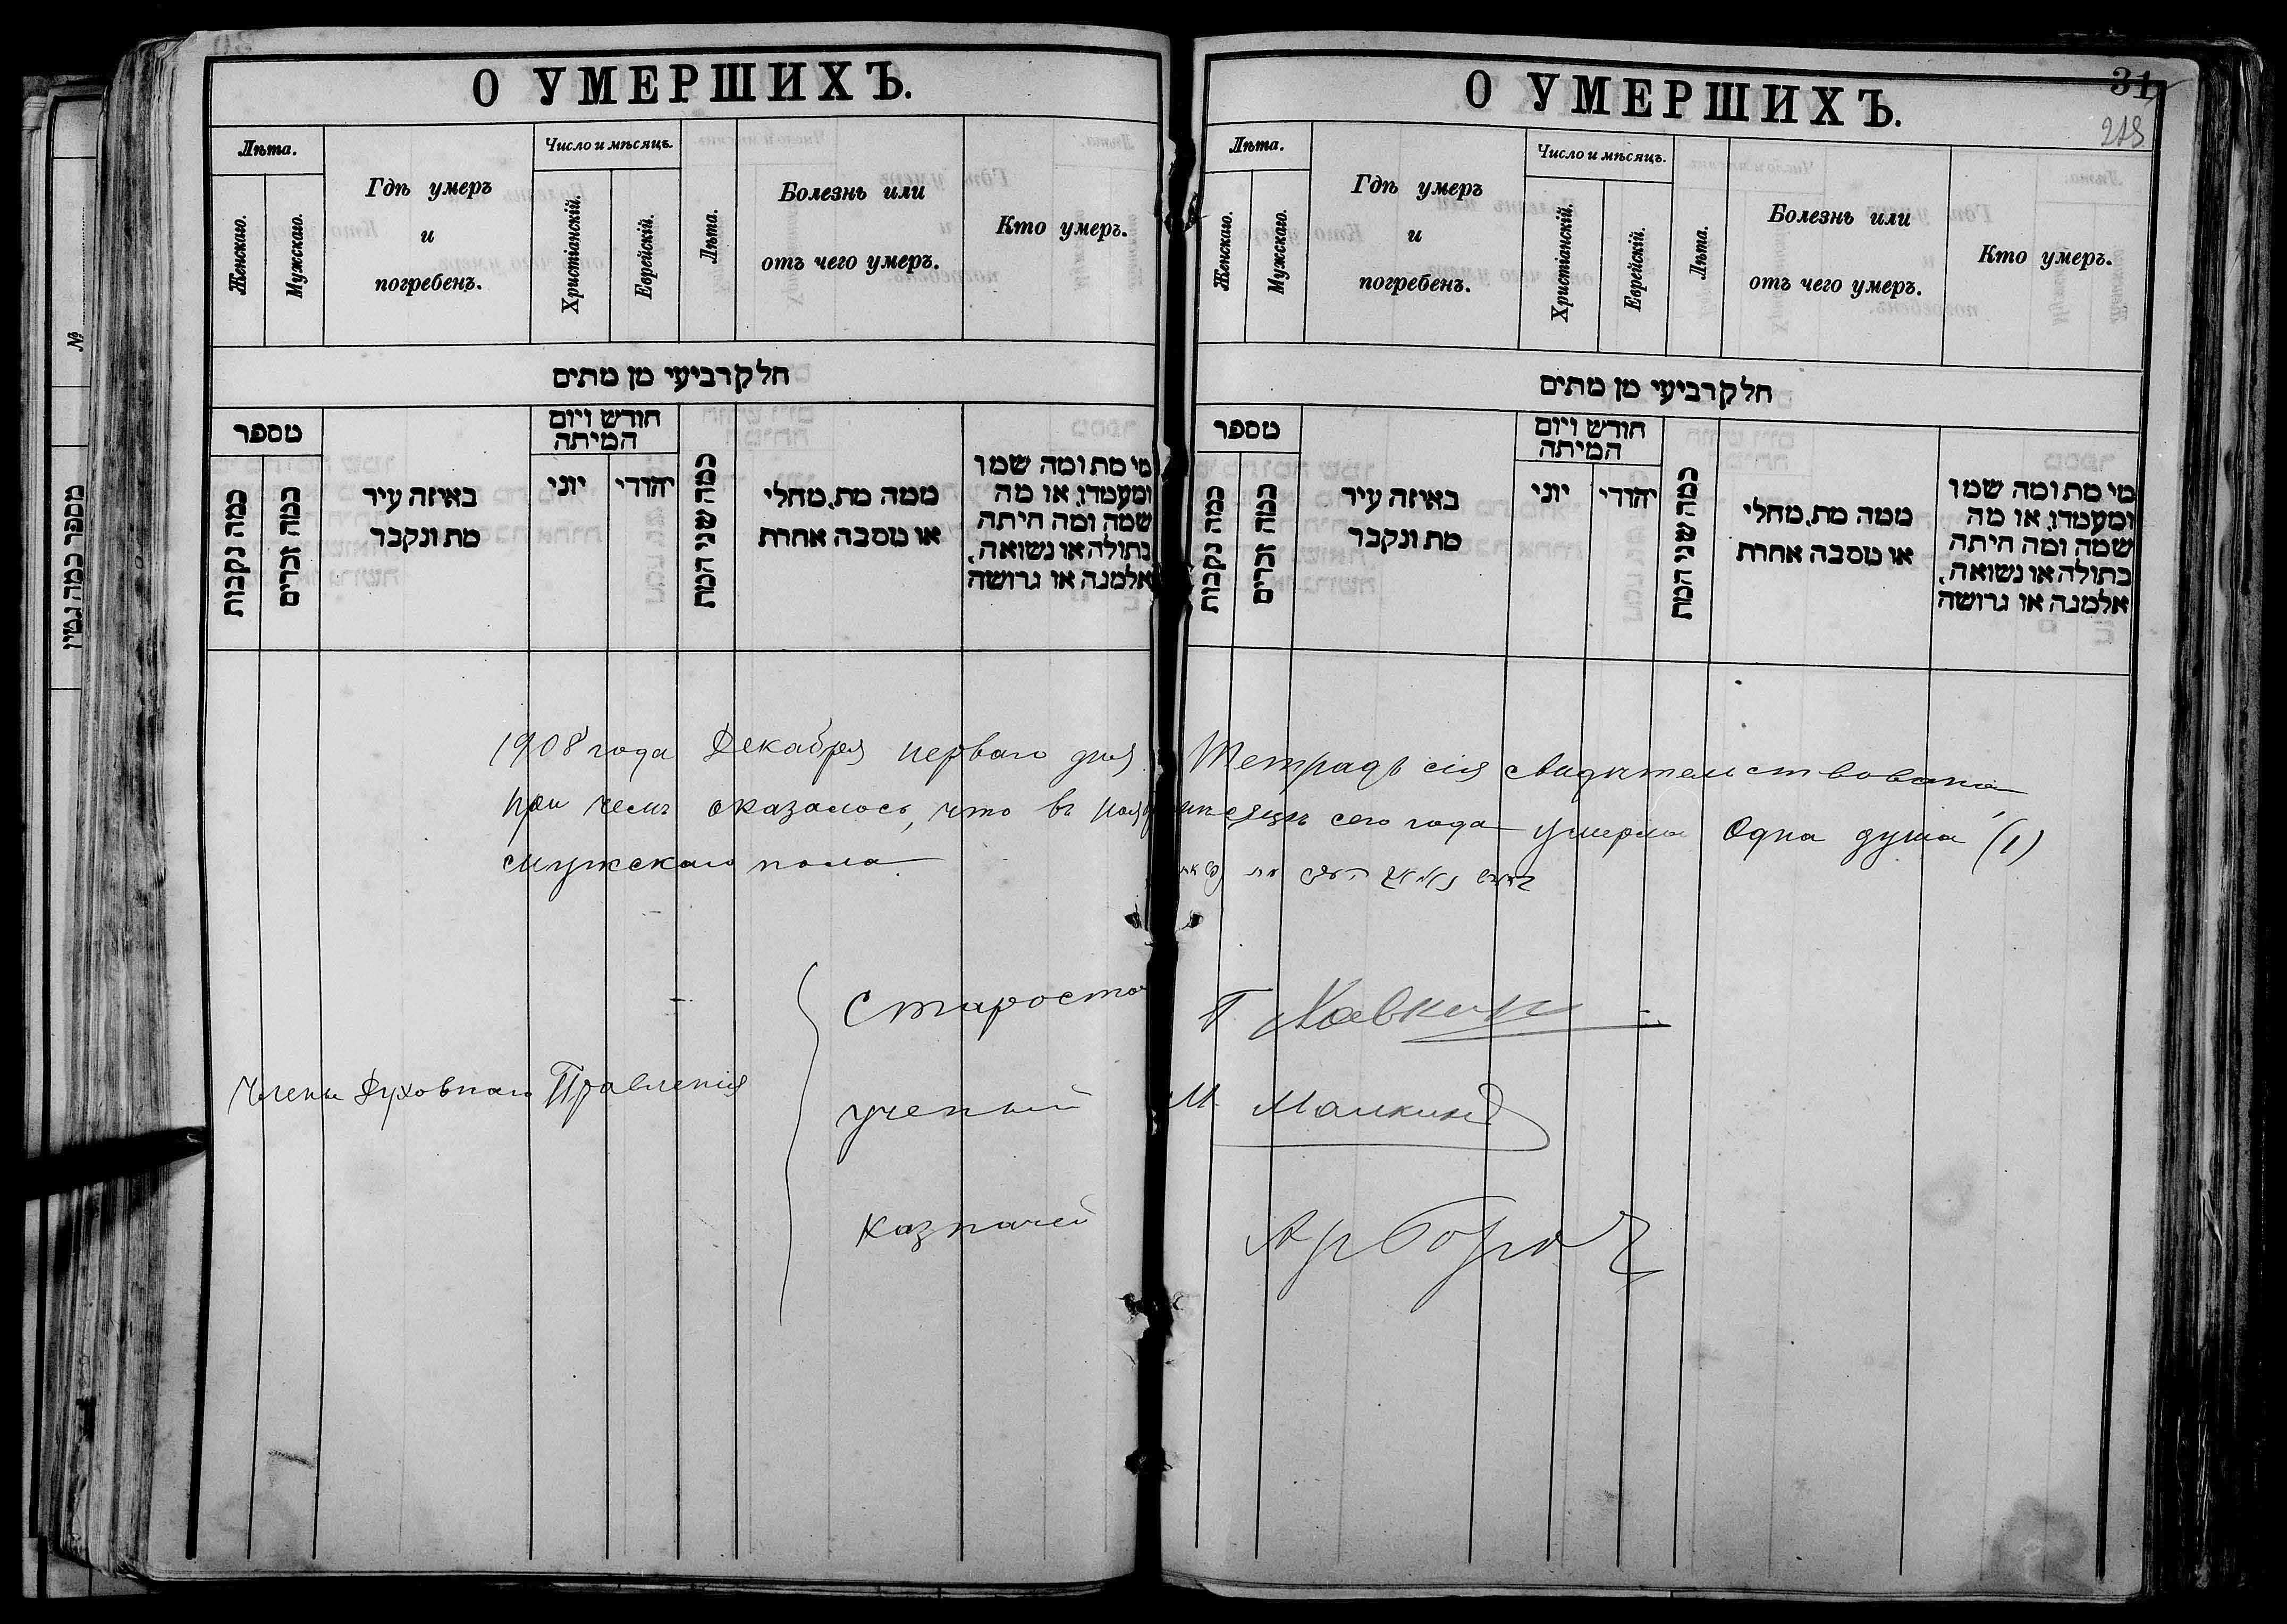 О УМЕРШИХЪ.
Лѣта.
Женскаго.
Мужскаго.
Гдѣ умеръ
и
погребенъ.
Число и мѣсяцъ.
Христіанскій.
Еврейскій.
Лѣта.
Болезнь или
отъ чего умеръ.
Кто умеръ.
חלק רביעי מן מתים
מספר
כמה נקבות
כמה זכרים
באיזה עיר
מת ונקבר
חודש ויום
המיתה
יוני
יהודי
כמה שני המת
ממה מת, מחלי
או מסבה אחרת
מי מת ומה שמו
ומעמדו, או מה
שמה ומה היתה
בתולה או נשואה,
אלמנה או גרושה
О УМЕРШИХЪ.
31
218
Лѣта.
Женскаго.
Мужскаго.
Гдѣ умеръ
и
погребенъ.
Число и мѣсяцъ.
Христіанскій.
Еврейскій.
Лѣта.
Болезнь или
отъ чего умеръ.
Кто умеръ.
חלק רביעי מן מתים
מספר
כמה נקבות
כמה זכרים
באיזה עיר
מת ונקבר
חודש ויום
המיתה
יוני
יהודי
כמה שני המת
ממה מת, מחלי
או מסבה אחרת
מי מת ומה שמו
ומעמדו, או מה
שמה ומה היתה
בתולה או נשואה,
אלמנה או גרושה
1908 года Декабря перваго дня Тетрадь сія свидѣтельствована,
при чемъ оказалось, что въ ноябрѣ мѣсяцѣ сего года умерла одна душа (1)
мужскаго пола
Члены Духовнаго Правленія
Староста Хавкин
ученый М. Малкинд
казначей
№
מספר כמה גטין